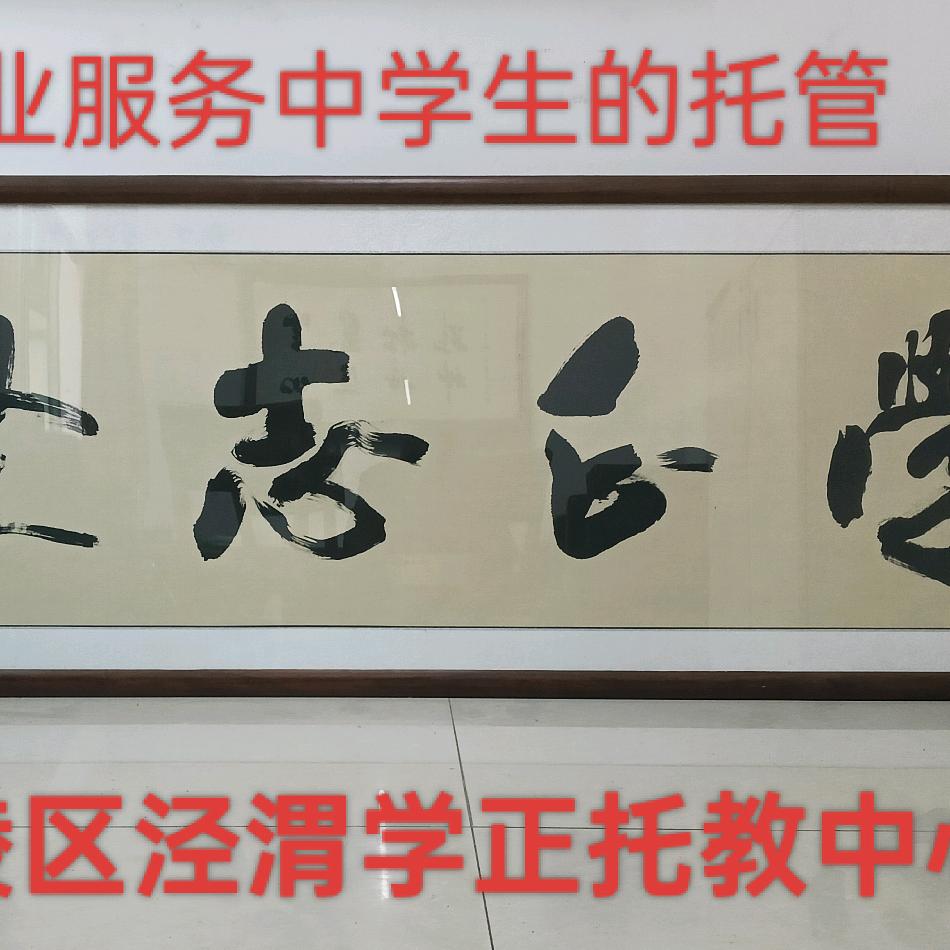 业服务中学生的托管
学志
区泾渭学正托教中心